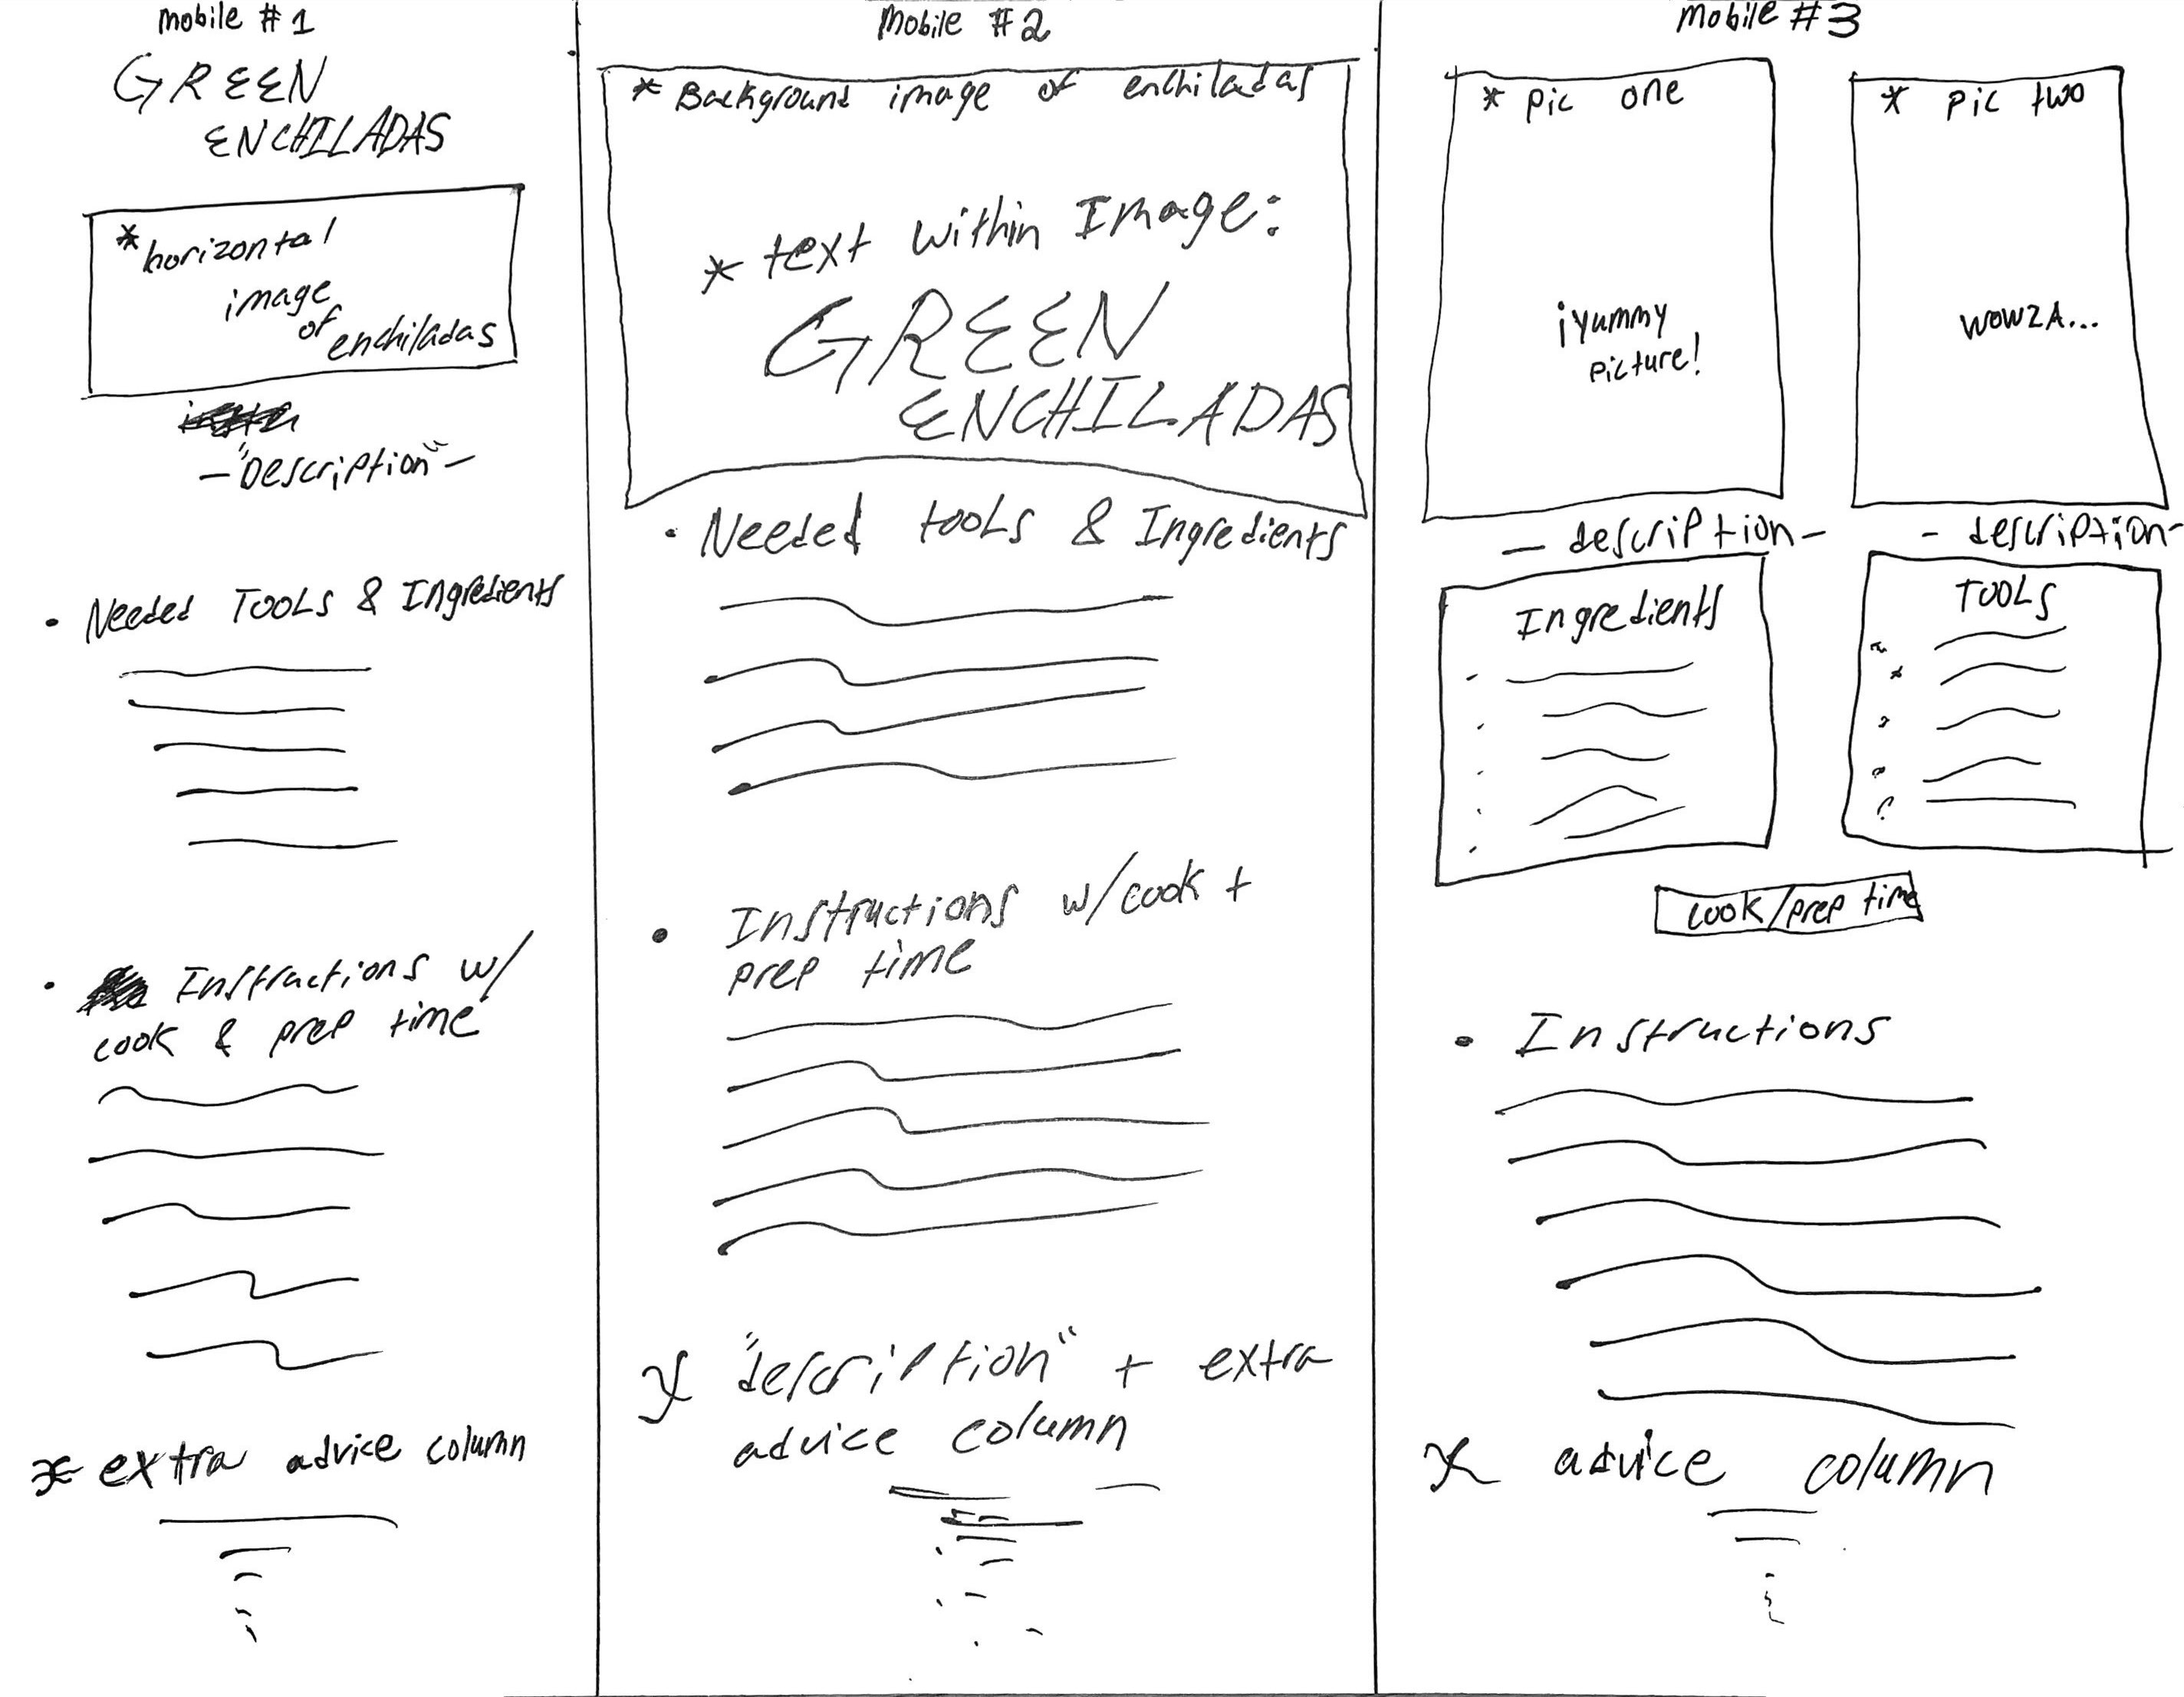 mobile #1
GREEN
ENCHILADAS
* horizontal
image
of
enchiladas
- "Description" -
• Needed TOOLS & Ingredients
• Instructions w/
cook & prep time
* extra advice column
Mobile #2
* Background image of enchiladas
* text within Image:
GREEN
ENCHILADAS
• Needed tools & Ingredients
• Instructions w/cook +
prep time
* "description" + extra
advice column
Mobile #3
* pic one
¡yummy
picture!
- description -
* pic two
WOWZA...
- description -
Ingredients
TOOLS
cook/prep time
• Instructions
* advice column